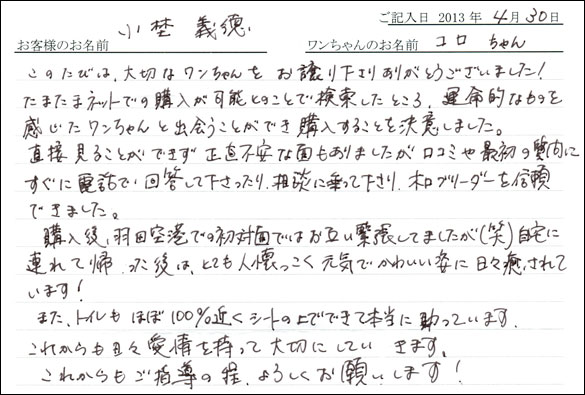 ご記入日 2013年4月30日
お客様のお名前 小埜 義徳 ワンちゃんのお名前 コロ ちゃん
このたびは、大切なワンちゃんをお譲り下さりありがとうございました!
たまたまネットでの購入が可能とのことで検索したところ、運命的なものを
感じたワンちゃんと出会うことができ購入することを決意しました。
直接見ることができず正直不安な面もありましたが口コミや最初の質問に
すぐに電話で回答して下さったり、相談に乗って下さり、木口ブリーダーを信頼
できました。
購入後、羽田空港での初対面ではお互い緊張してましたが(笑)自宅に
連れて帰った後は、とても人懐っこく元気でかわいい姿に日々癒されて
います!
また、トイレもほぼ100%近くシートの上でできて本当に助っています。
これからも日々愛情を持って大切にしていきます。
これからもご指導の程、よろしくお願いします!